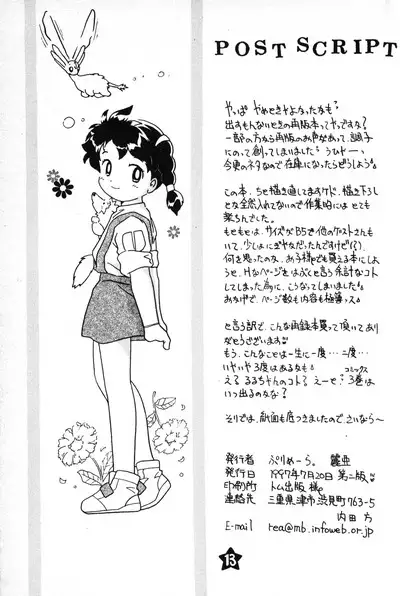 POST SCRIPT
やっぱ やめときゃよかったかも?
出すもんないときの再版本ってヤツですな?
一部の方から再版のお声があって、調子
にのって創ってしまいました? うひゃー。
今更のネタなので在庫になったらどうしよう。
この本、5P描き直してますケド、描き下ろし
とな全然入れてないので作業的にはとても
楽ちんでした。
もともとは、サイズがB5で他のゲストさんも
いて、少しHにぎやかだったんですけど(?)
何を思ったのか、お子様でも買える本にしよ
うと、Hなページをはぶくと言う余計なコト
してしまった為に、こうなってしまいました
おかげで、ページ数も内容も極薄っス。
と言う訳で、こんな再録本買って頂いてあり
がとうございます
もう、こんなことは一生に一度…二度…
いやいや3度はあるかも。
え? るるちゃんのコト? えーと? コミックス3巻は
いつ出るのかな?
それでは、紙面も尽きましたので、さいなら〜
発行者 ぷりめーら。 麗亜
発行日 1997年7月20日 第二版
印刷所 トム出版 様
連絡先 三重県津市渋見町763-5
内田 方
E-mail rea@mb.infoweb.or.jp
13